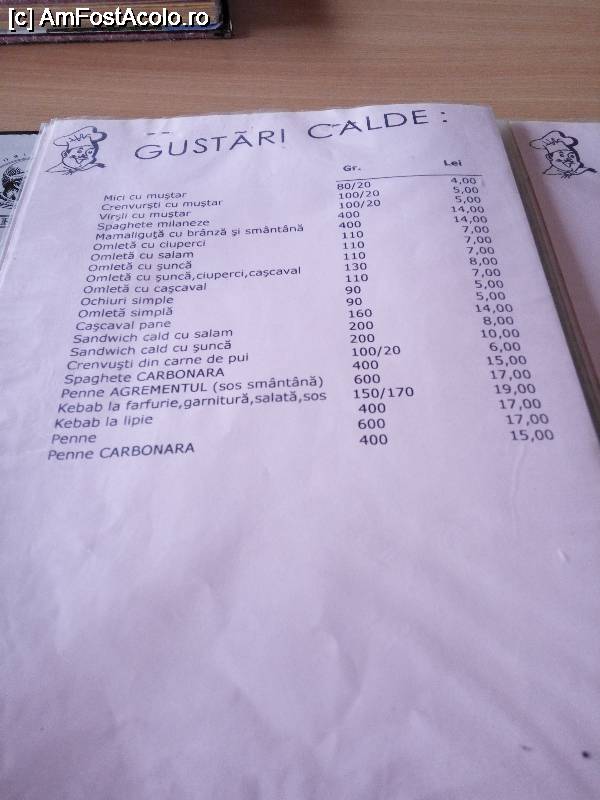 [c] AmFostAcolo.ro
GUSTĂRI CALDE :
Gr. Lei
Mici cu muştar 80/20 4,00
Crenvurşti cu muştar 100/20 5,00
Vîrşli cu muştar 100/20 5,00
Spaghete milaneze 400 14,00
Mamaliguţă cu brânză şi smântână 400 14,00
Omletă cu ciuperci 110 7,00
Omletă cu salam 110 7,00
Omletă cu şuncă 110 7,00
Omletă cu şuncă,ciuperci,caşcaval 130 8,00
Omletă cu caşcaval 110 7,00
Ochiuri simple 90 5,00
Omletă simplă 90 5,00
Caşcaval pane 160 14,00
Sandwich cald cu salam 200 8,00
Sandwich cald cu şuncă 200 10,00
Crenvuşti din carne de pui 100/20 6,00
Spaghete CARBONARA 400 15,00
Penne AGREMENTUL (sos smântână) 600 17,00
Kebab la farfurie,garnitură,salată,sos 150/170 19,00
Kebab la lipie 400 17,00
Penne 600 17,00
Penne CARBONARA 400 15,00